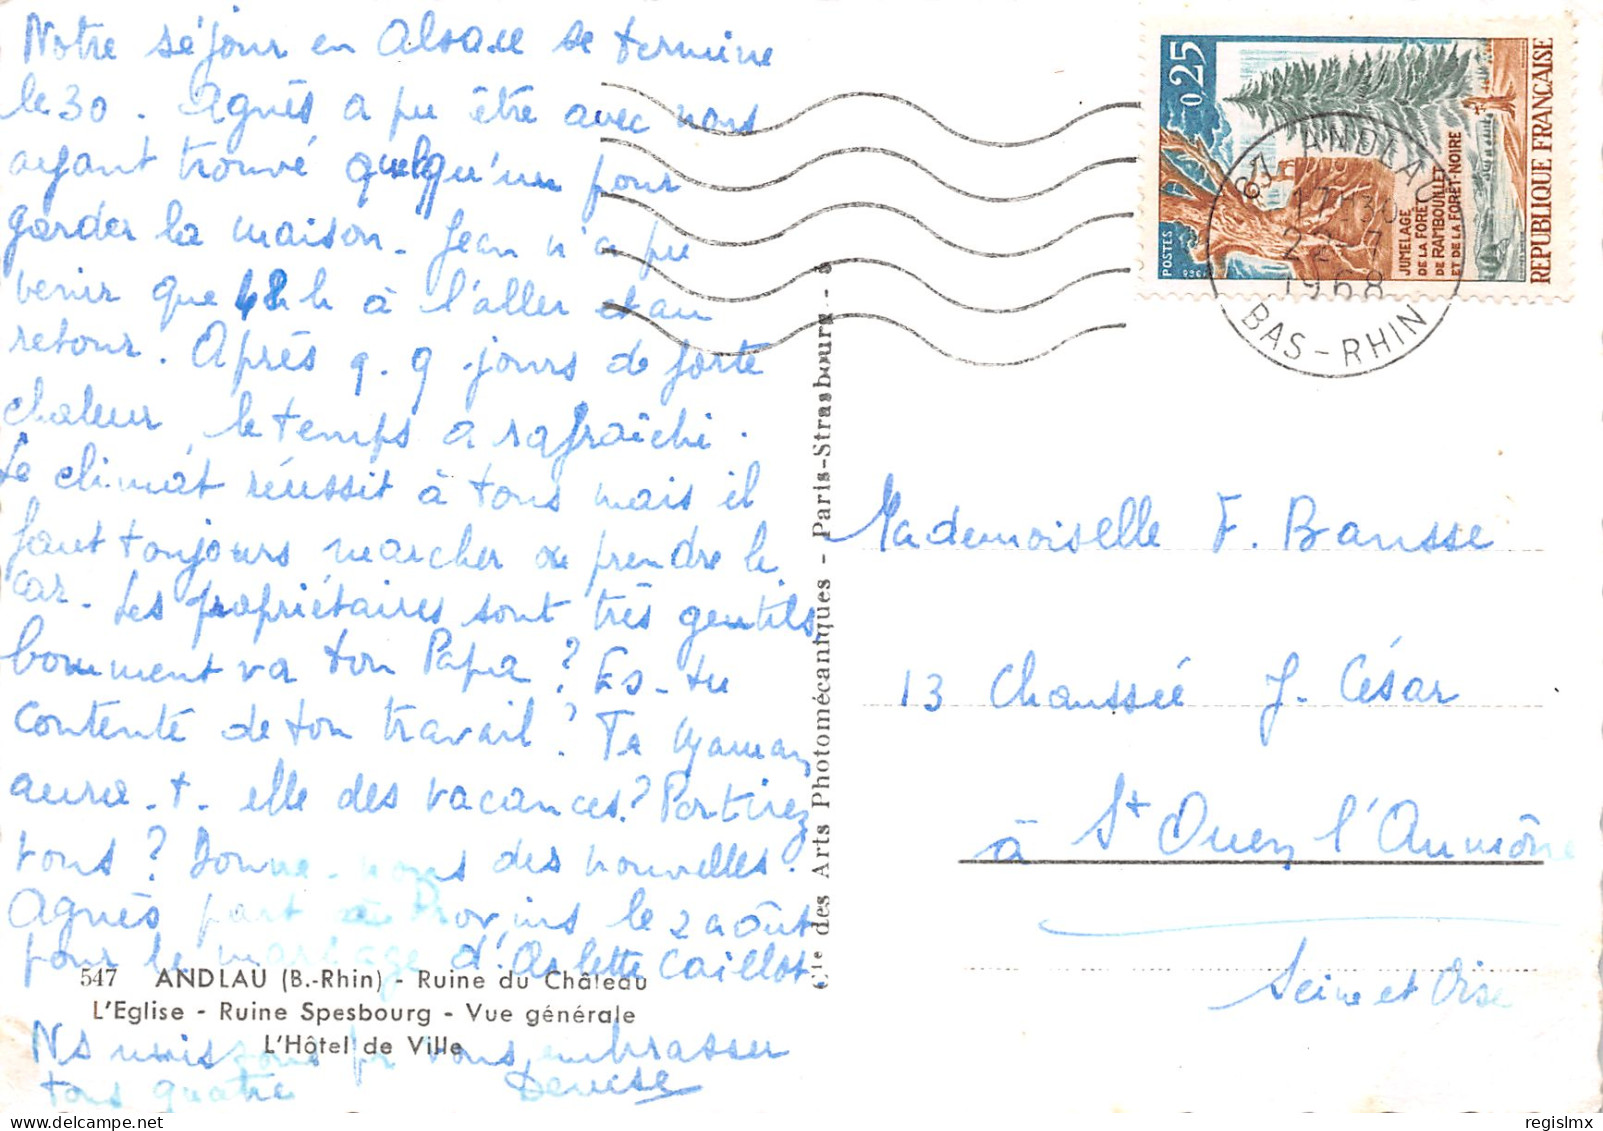 Notre séjour en Alsace se termine
le 30. Agnès a pu être avec nous
ayant trouvé quelqu'un pour
garder la maison. Jean n'a pu
venir que 48 h à l'aller et au
retour. Après q. q jours de forte
chaleur, le temps a rafraîchi.
Le climat réussit à tous mais il
faut toujours marcher ou prendre le
car. Les propriétaires sont très gentils,
Comment va ton Papa? Es-tu
contente de ton travail? Ta Maman
aura-t-elle des vacances? Partirez
vous? Donne-nous des nouvelles.
Agnès part à Provins le 2 août
pour le mariage d'Arlette Caillot.
547 ANDLAU (B.-Rhin) - Ruine du Château
L'Eglise - Ruine Spesbourg - Vue générale
L'Hôtel de Ville
Ns unissons pr vous embrasser
tous quatre Denise
Cie des Arts Photomécaniques - Paris-Strasbourg -
0,25
POSTES
JUMELAGE
DE LA FORÊT
DE RAMBOUILLET
ET DE LA FORÊT-NOIRE
REPUBLIQUE FRANÇAISE
67 ANDLAU
17H30
22-7
1968
BAS-RHIN
Mademoiselle F. Bansse
13 Chaussée J. César
à St Ouen l'Aumône
Seine et Oise
regislmx